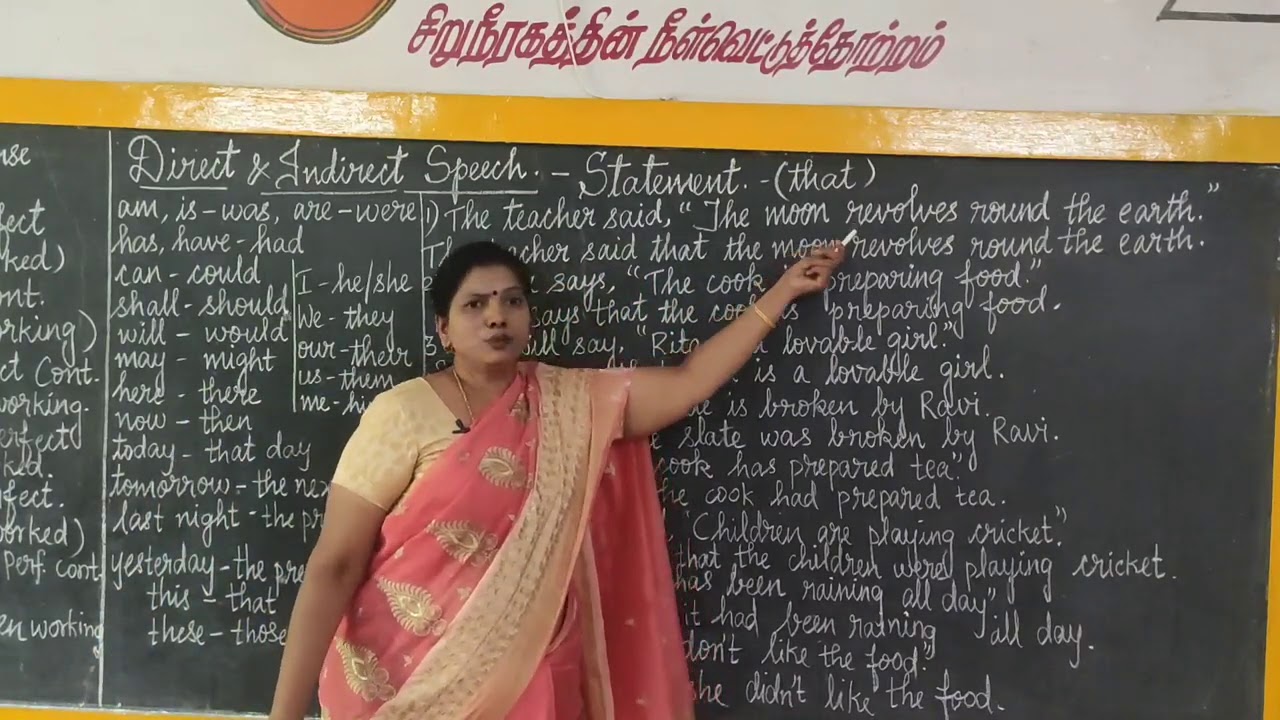 சிறுநீரகத்தின் நீள்வெட்டுத்தோற்றம்
Direct & Indirect Speech. - Statement. - (that)
am, is - was, are - were
has, have - had
can - could
shall - should
will - would
may - might
here - there
now - then
today - that day
tomorrow - the
last night - the
yesterday - the
this - that
these - those
I - he/she
We - they
our - their
us - them
me -
1) The teacher said, "The moon revolves round the earth."
said that the moon revolves round the earth.
says, "The cook preparing food."
says that the cook is preparing food.
say, "Rita lovable girl."
is a lovable girl.
is broken by Ravi.
slate was broken by Ravi.
cook has prepared tea."
the cook had prepared tea.
"Children are playing cricket."
that the children were playing cricket.
has been raining all day"
it had been raining all day.
don't like the food."
she didn't like the food.
Cont.
working.
Perf. cont.
working